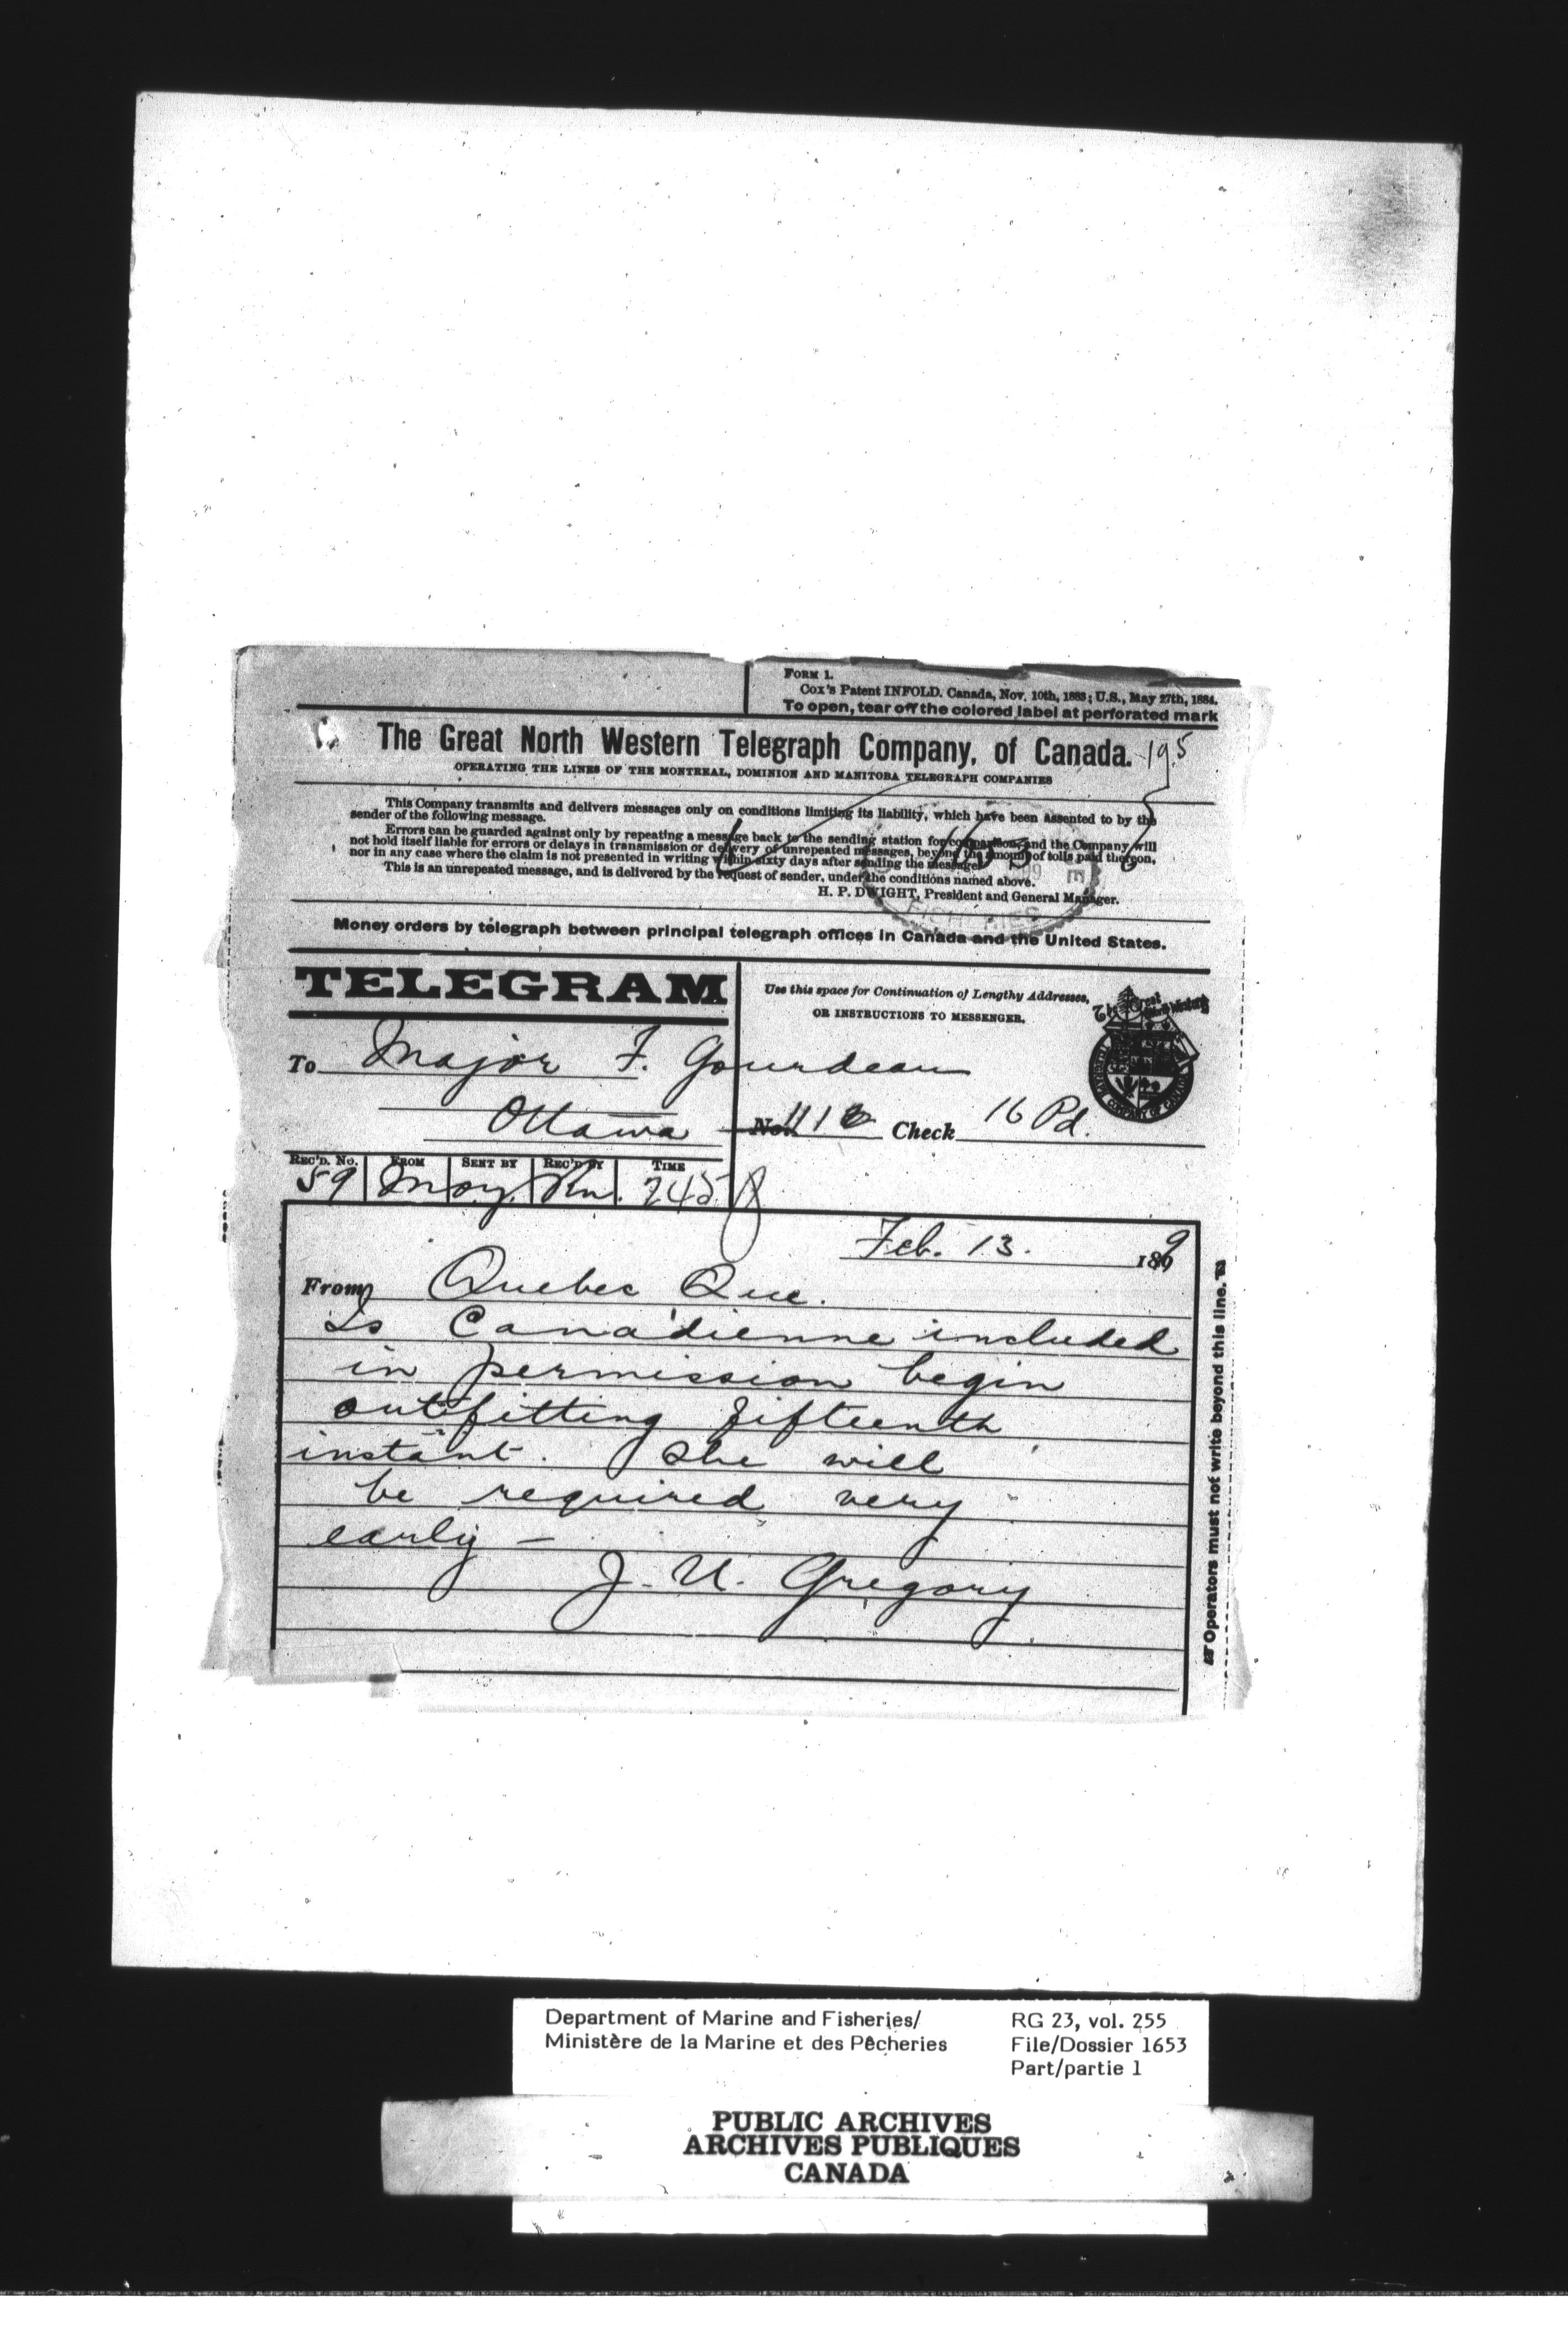 FORM 1.
Cox's Patent INFOLD. Canada, Nov. 10th, 1883; U.S., May 27th, 1884.
To open, tear off the colored label at perforated mark
The Great North Western Telegraph Company, of Canada.
195
OPERATING THE LINES OF THE MONTREAL, DOMINION AND MANITOBA TELEGRAPH COMPANIES
This Company transmits and delivers messages only on conditions limiting its liability, which have been assented to by the
sender of the following message.
Errors can be guarded against only by repeating a message back to the sending station for comparison, and the Company will
not hold itself liable for errors or delays in transmission or delivery of unrepeated messages, beyond the amount of tolls paid thereon,
nor in any case where the claim is not presented in writing within sixty days after sending the message.
This is an unrepeated message, and is delivered by the request of sender, under the conditions named above.
H. P. DWIGHT, President and General Manager.
Money orders by telegraph between principal telegraph offices in Canada and the United States.
TELEGRAM
Use this space for Continuation of Lengthy Addresses,
OR INSTRUCTIONS TO MESSENGER.
To Major F. Gourdeau
Ottawa
No. Check 16 Pd.
REC'D. No. FROM SENT BY REC'D BY TIME
59 245
Feb. 13. 1899
From Quebec Que.
Is Canadienne included
in permission begin
outfitting fifteenth
instant. She will
be required very
early -
J. U. Gregory
Operators must not write beyond this line.
Department of Marine and Fisheries/
Ministère de la Marine et des Pêcheries
RG 23, vol. 255
File/Dossier 1653
Part/partie 1
PUBLIC ARCHIVES
ARCHIVES PUBLIQUES
CANADA